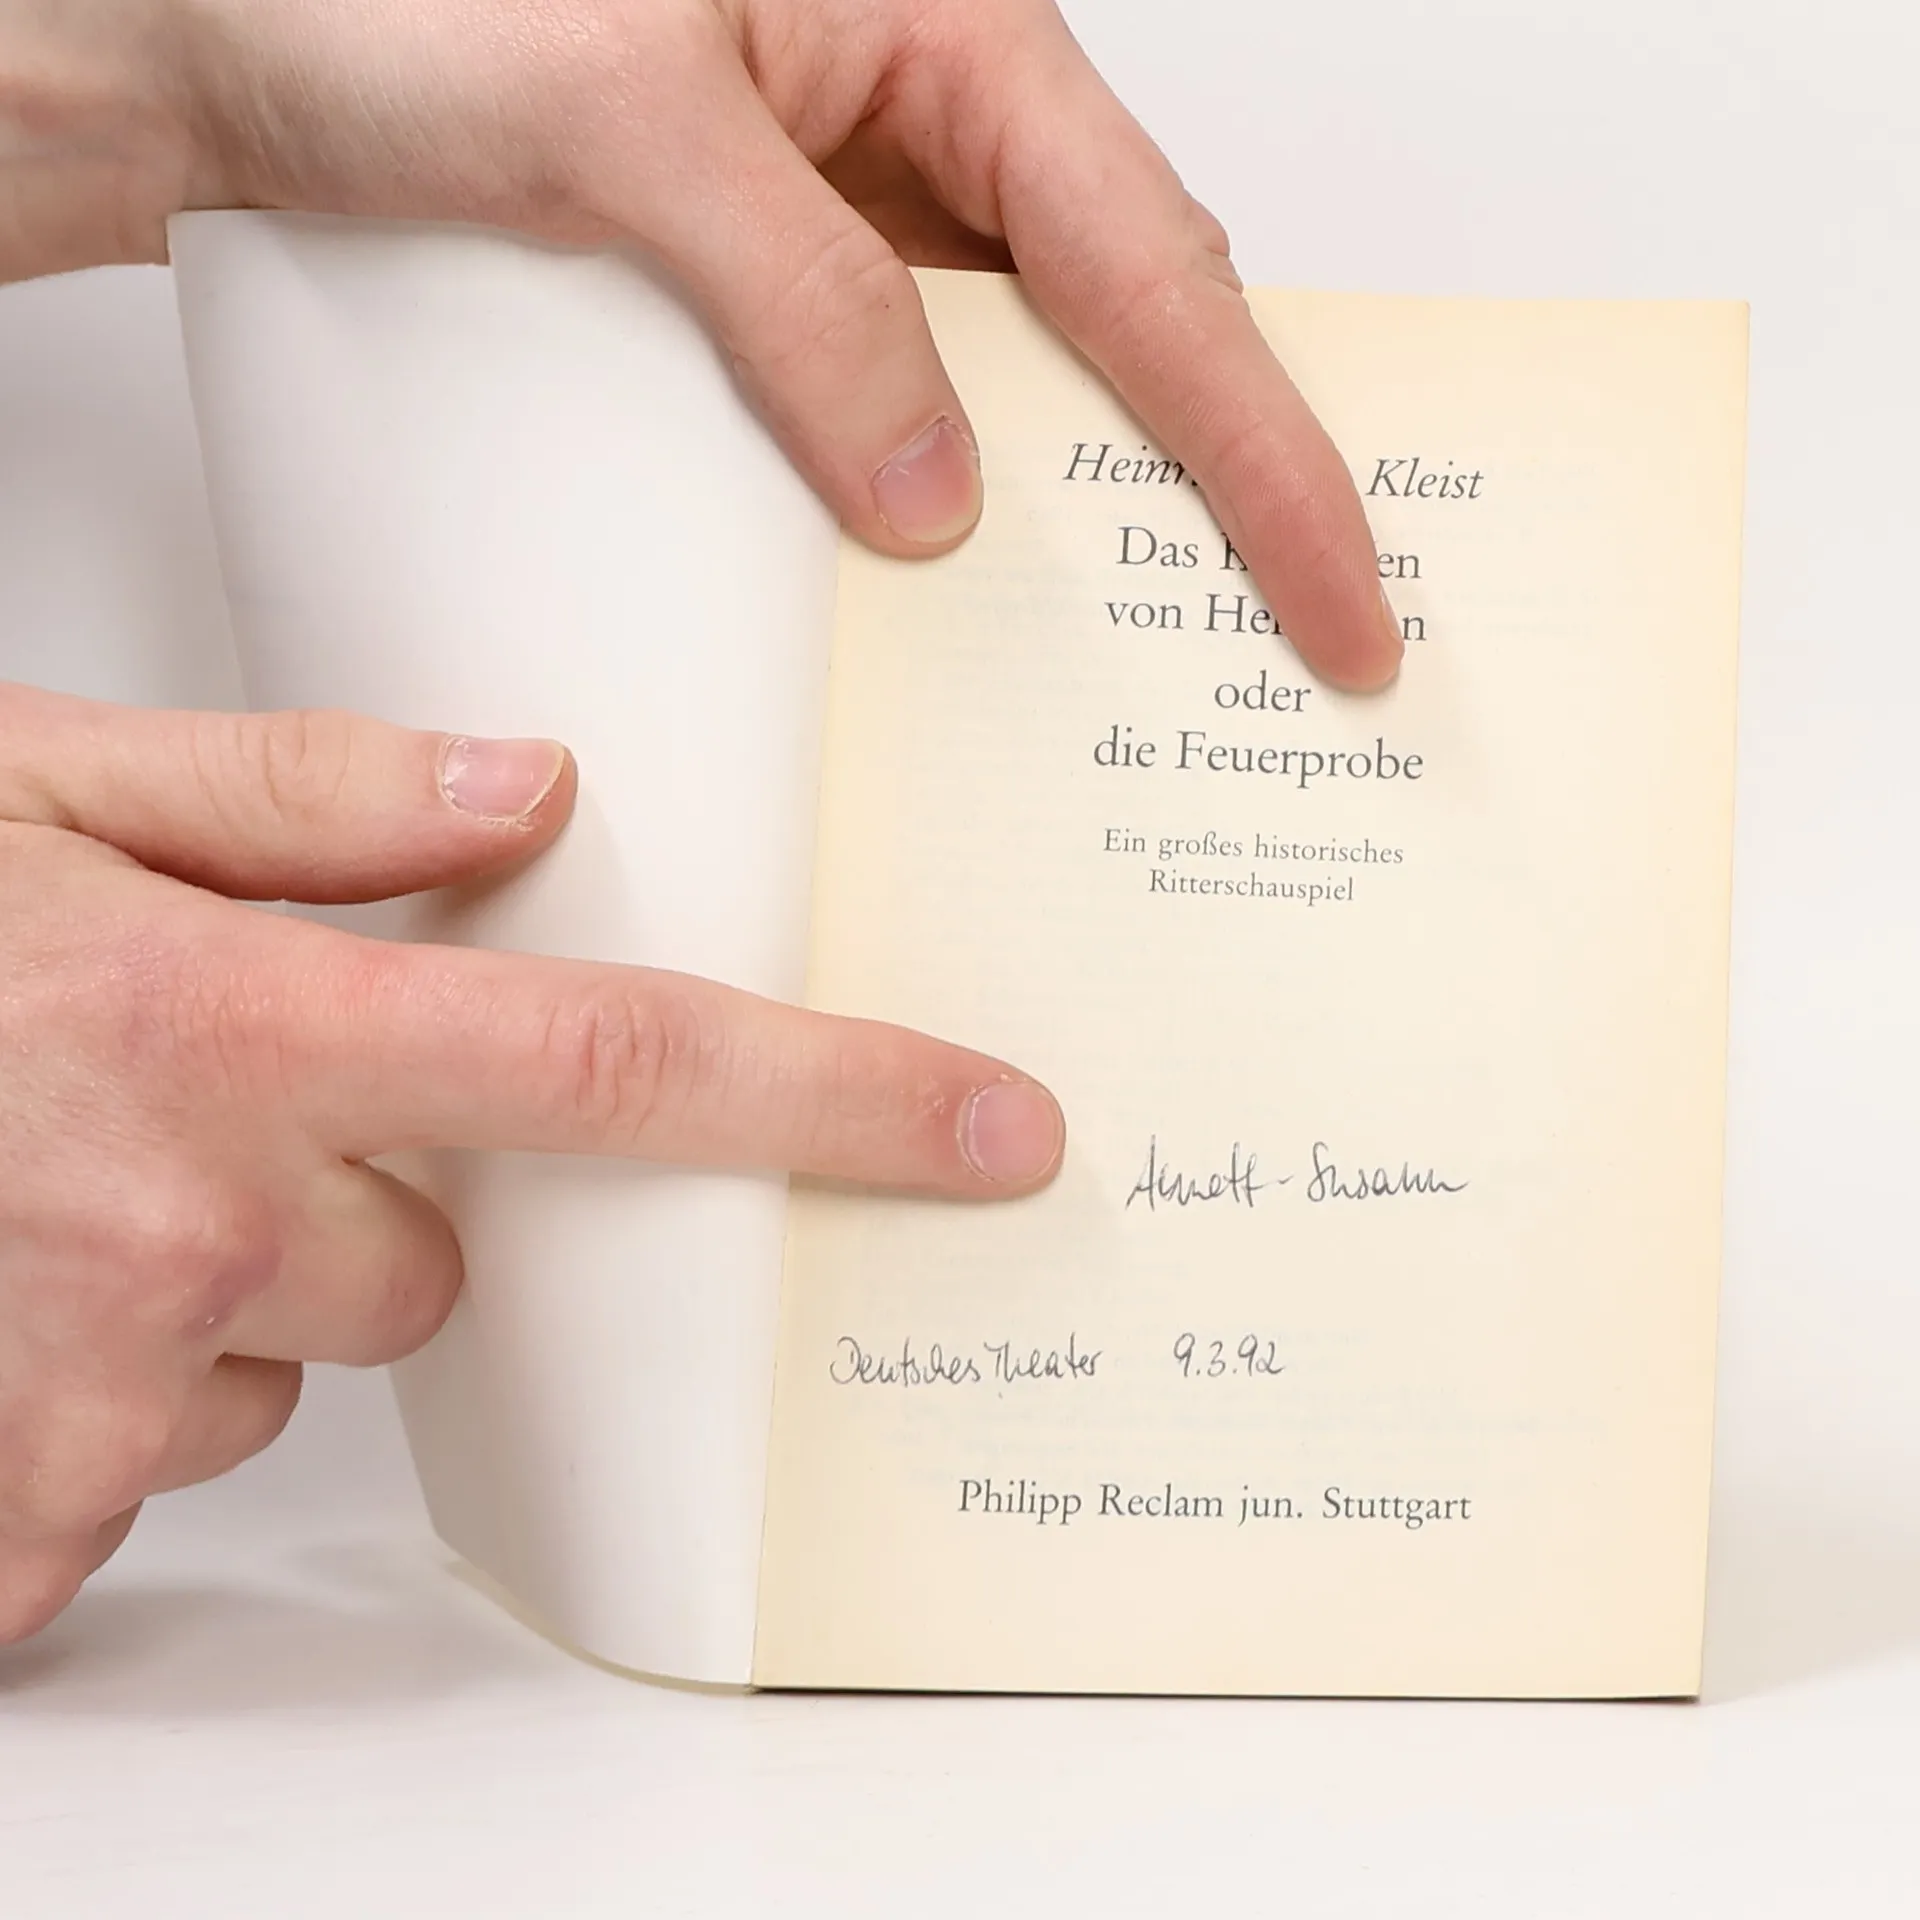 Heinr Kleist
Das K en
von Hei n
oder
die Feuerprobe
Ein großes historisches
Ritterschauspiel
Annett-Susann
Deutsches Theater 9.3.92
Philipp Reclam jun. Stuttgart